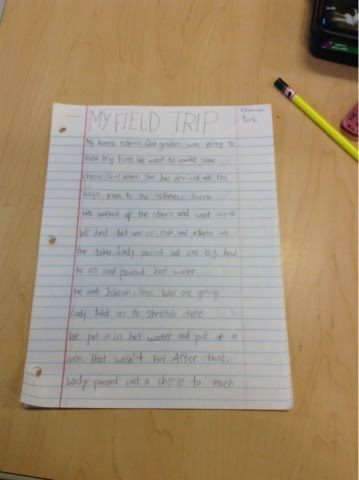 MY FIELD TRIP
Park
My korea school, 2nd graders was going to
field trip First We went to make some
cheese, but when the bus arrived all the
boys ran to the
We walked up the stairs and went inside.
We had hot and in
the table. Lady poured out one big bowl
to us and poured hot water.
Me and was one group.
Lady told us to stretch chese
We put it in hot water and put it a
oven. that wasn't hot. After that,
Lady passed out a chese to each